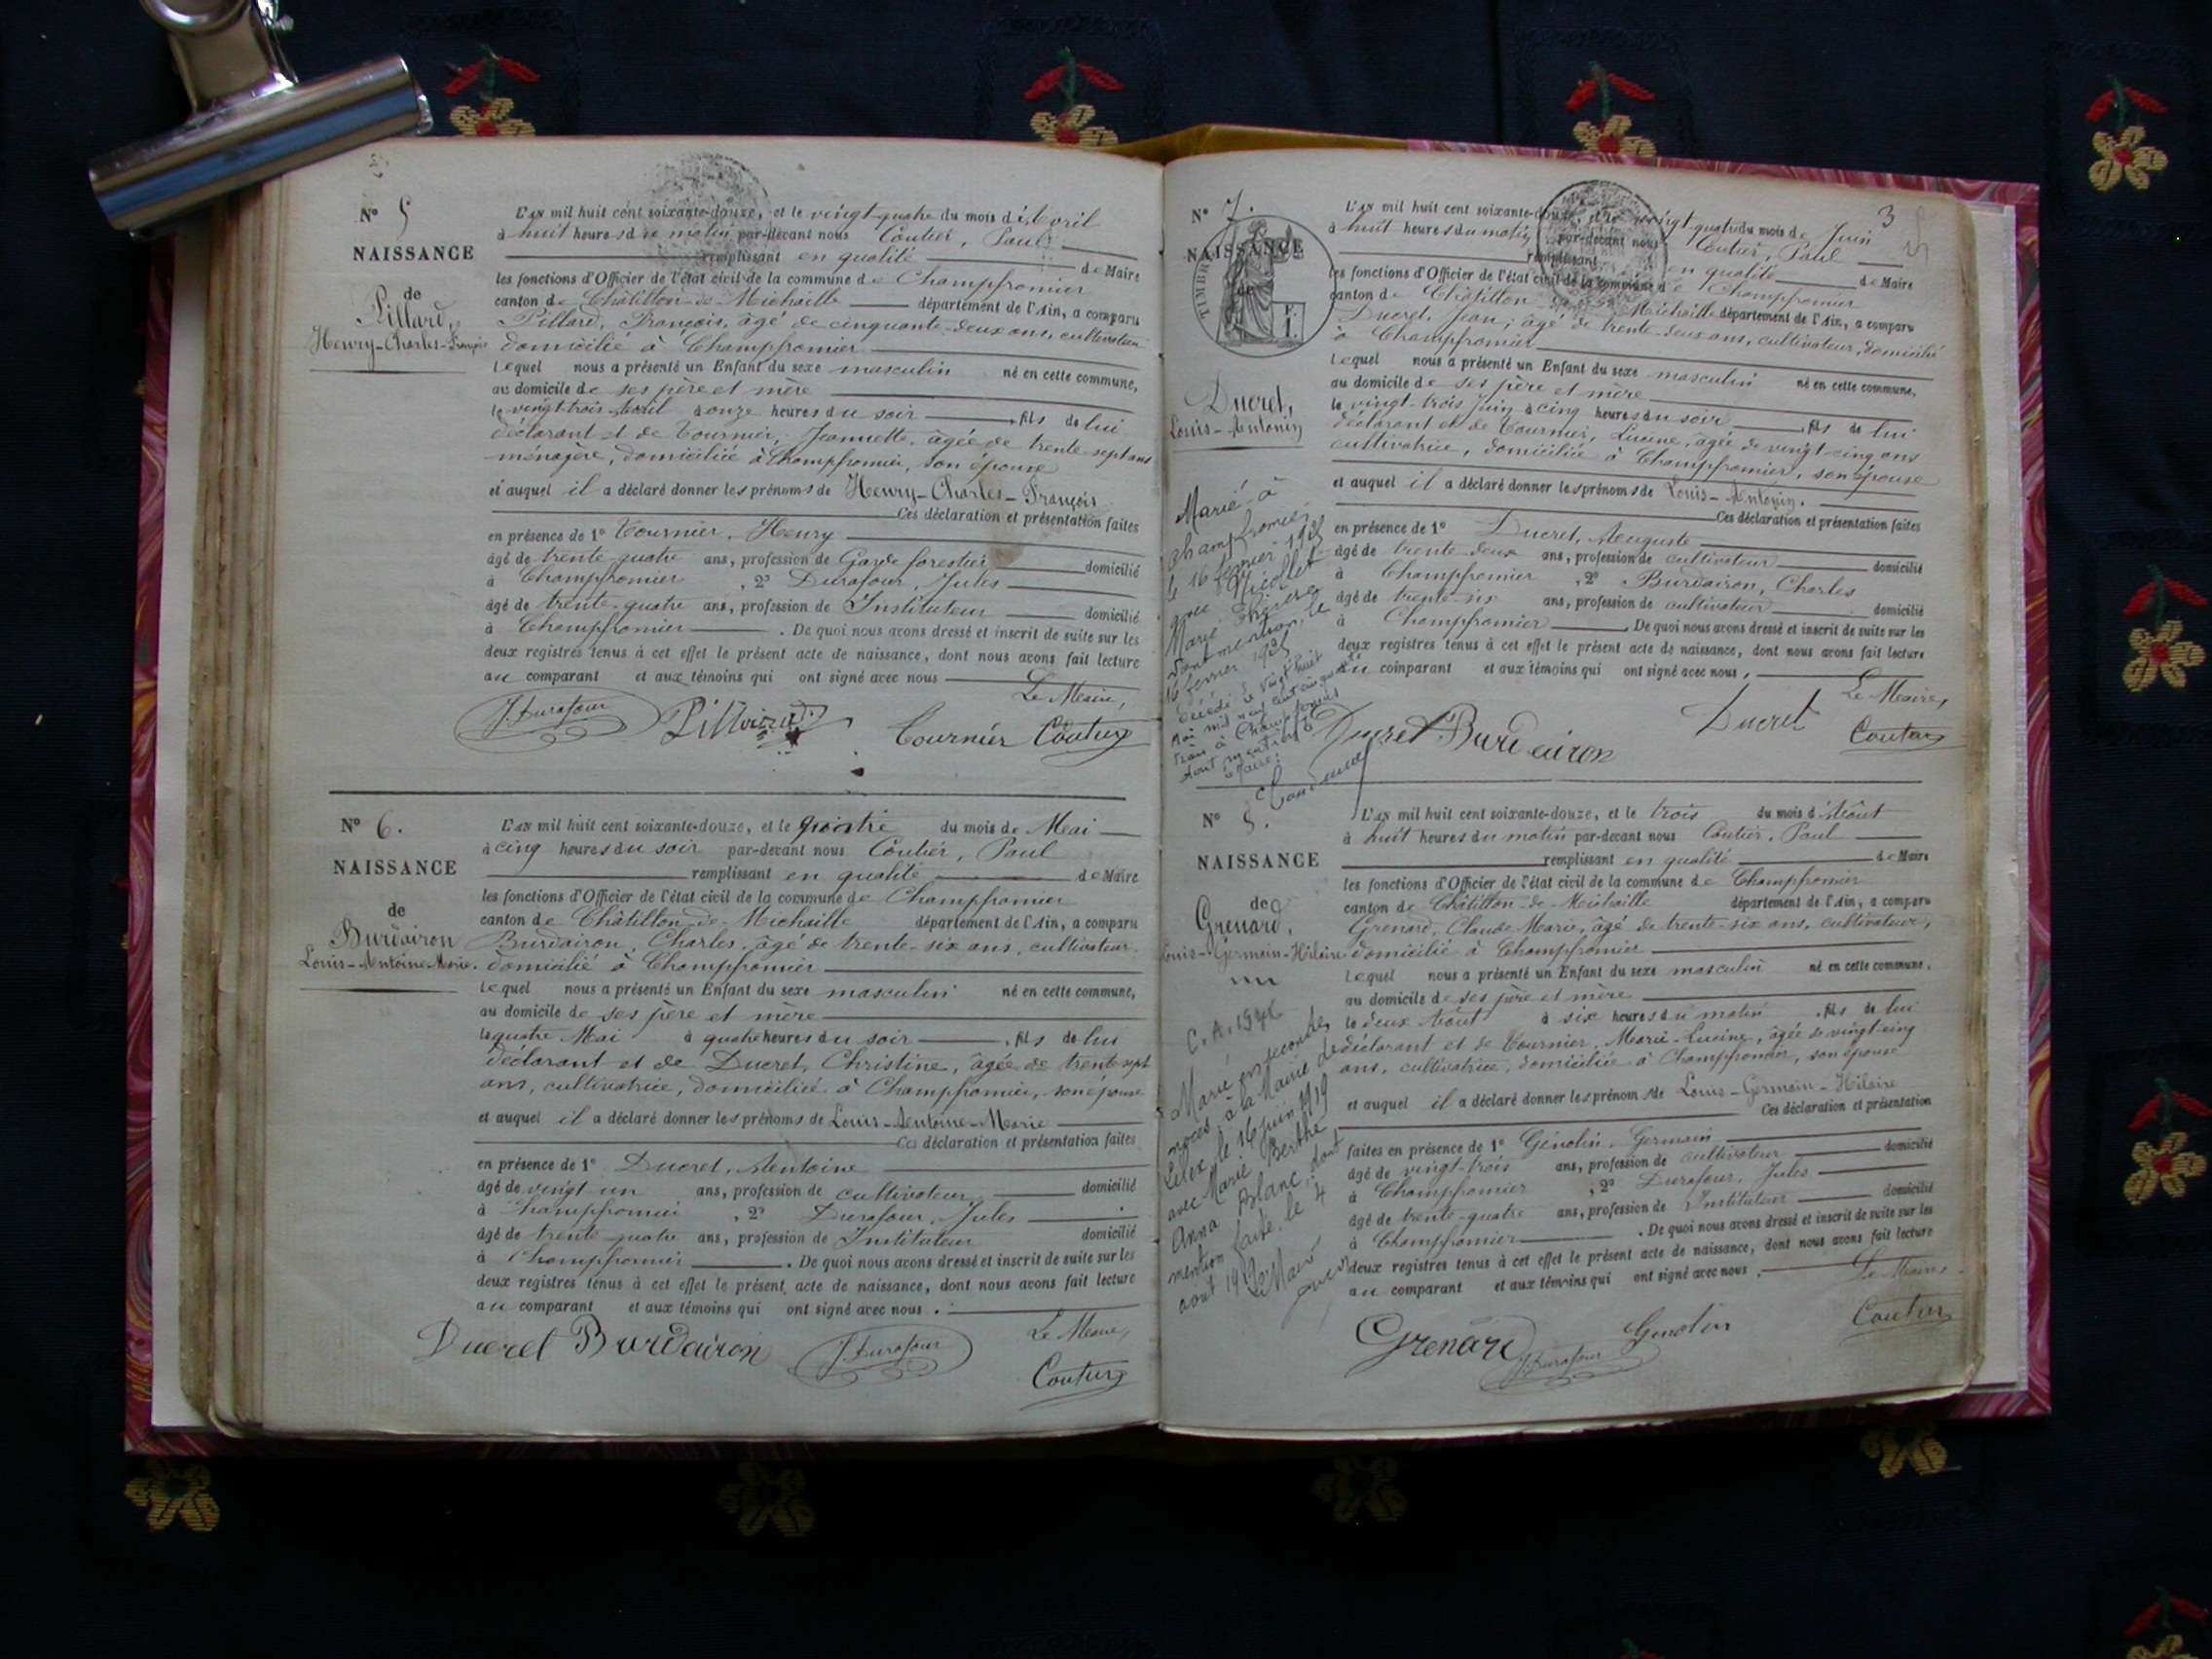 N° 5
NAISSANCE
de
Pillard,
Henry-Charles-François
L'AN mil huit cent soixante-douze, et le vingt-quatre du mois d'Avril
à huit heures du matin par-devant nous Coutier, Paul
remplissant en qualité de Maire
les fonctions d'Officier de l'état civil de la commune de Champfromier
canton de Châtillon-de-Michaille département de l'Ain, a comparu
Pillard, François, âgé de cinquante-deux ans, cultivateur
domicilié à Champfromier
Lequel nous a présenté un Enfant du sexe masculin né en cette commune,
au domicile de ses père et mère
le vingt-trois Avril à onze heures du soir, fils de lui
déclarant et de Tournier, Jeannette, âgée de trente-sept ans
ménagère, domiciliée à Champfromier, son épouse
et auquel il a déclaré donner les prénoms de Henry-Charles-François
Ces déclaration et présentation faites
en présence de 1° Tournier, Henry
âgé de trente-quatre ans, profession de Garde forestier domicilié
à Champfromier, 2° Durafour, Jules
âgé de trente-quatre ans, profession de Instituteur domicilié
à Champfromier. De quoi nous avons dressé et inscrit de suite sur les
deux registres tenus à cet effet le présent acte de naissance, dont nous avons fait lecture
au comparant et aux témoins qui ont signé avec nous
Le Maire,
J. Durafour Pillard Tournier Coutier
N° 6.
NAISSANCE
de
Burdairon
Louis-Antoine-Marie.
L'AN mil huit cent soixante-douze, et le quatre du mois de Mai
à cinq heures du soir par-devant nous Coutier, Paul
remplissant en qualité de Maire
les fonctions d'Officier de l'état civil de la commune de Champfromier
canton de Châtillon-de-Michaille département de l'Ain, a comparu
Burdairon, Charles, âgé de trente-six ans, cultivateur
domicilié à Champfromier
Lequel nous a présenté un Enfant du sexe masculin né en cette commune,
au domicile de ses père et mère
le quatre Mai à quatre heures du soir, fils de lui
déclarant et de Ducret, Christine, âgée de trente-sept
ans, cultivatrice, domiciliée à Champfromier, son épouse
et auquel il a déclaré donner les prénoms de Louis-Antoine-Marie
Ces déclaration et présentation faites
en présence de 1° Ducret, Antoine
âgé de vingt un ans, profession de cultivateur domicilié
à Champfromier, 2° Durafour, Jules
âgé de trente-quatre ans, profession de Instituteur domicilié
à Champfromier. De quoi nous avons dressé et inscrit de suite sur les
deux registres tenus à cet effet le présent acte de naissance, dont nous avons fait lecture
au comparant et aux témoins qui ont signé avec nous.
Le Maire,
Ducret Burdairon J. Durafour Coutier
3
N° 7.
NAISSANCE
de
TIMBRE
Ducret,
Louis-Antonin
L'AN mil huit cent soixante-douze, et le vingt-quatre du mois de Juin
à huit heures du matin par-devant nous Coutier, Paul
remplissant en qualité de Maire
les fonctions d'Officier de l'état civil de la commune de Champfromier
canton de Châtillon de Michaille département de l'Ain, a comparu
Ducret, Jean, âgé de trente-deux ans, cultivateur, domicilié
à Champfromier
Lequel nous a présenté un Enfant du sexe masculin né en cette commune,
au domicile de ses père et mère
le vingt-trois Juin à cinq heures du soir, fils de lui
déclarant et de Tournier, Lucine, âgée de vingt-cinq ans
cultivatrice, domiciliée à Champfromier, son épouse
et auquel il a déclaré donner les prénoms de Louis-Antonin.
Ces déclaration et présentation faites
en présence de 1° Ducret, Auguste
âgé de trente-deux ans, profession de cultivateur domicilié
à Champfromier, 2° Burdairon, Charles
âgé de trente-six ans, profession de cultivateur domicilié
à Champfromier. De quoi nous avons dressé et inscrit de suite sur les
deux registres tenus à cet effet le présent acte de naissance, dont nous avons fait lecture
au comparant et aux témoins qui ont signé avec nous,
Le Maire,
Ducret Burdairon Ducret Coutier
Marié à
Champfromier
le 16 février 1925
avec Nicollet
Marie Thérèse
dont mention le
16 février 1925
Décédé le vingt huit
mai mil neuf cent cinquante
trois à Champfromier
dont mention
N° 8.
NAISSANCE
de
Grenard,
Louis-Germain-Hilaire
L'AN mil huit cent soixante-douze, et le trois du mois d'Août
à huit heures du matin par-devant nous Coutier, Paul
remplissant en qualité de Maire
les fonctions d'Officier de l'état civil de la commune de Champfromier
canton de Châtillon-de-Michaille département de l'Ain, a comparu
Grenard, Claude-Marie, âgé de trente-six ans, cultivateur,
domicilié à Champfromier
Lequel nous a présenté un Enfant du sexe masculin né en cette commune,
au domicile de ses père et mère
le deux Août à six heures du matin, fils de lui
déclarant et de Tournier, Marie-Lucine, âgée de vingt-cinq
ans, cultivatrice, domiciliée à Champfromier, son épouse
et auquel il a déclaré donner les prénoms de Louis-Germain-Hilaire
Ces déclaration et présentation
faites en présence de 1° Génolin, Germain
âgé de vingt-trois ans, profession de cultivateur domicilié
à Champfromier, 2° Durafour, Jules
âgé de trente-quatre ans, profession de Instituteur domicilié
à Champfromier. De quoi nous avons dressé et inscrit de suite sur les
deux registres tenus à cet effet le présent acte de naissance, dont nous avons fait lecture
au comparant et aux témoins qui ont signé avec nous.
Le Maire,
Grenard J. Durafour Génolin Coutier
C. A. 1946
Marié en secondes
noces à la Mairie de
Lélex le 16 juin 1919
avec Marie Berthe
Anna Blanc, dont
mention faite le 4
août 1919
Le Maire